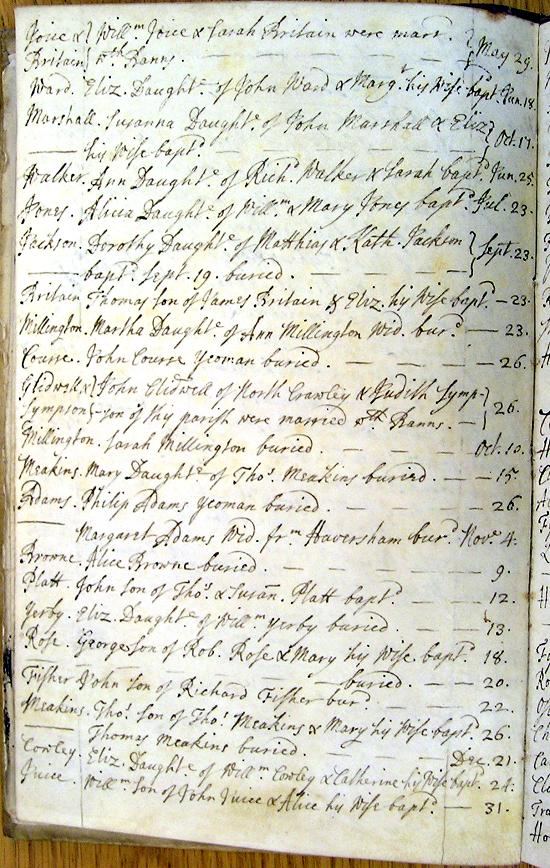 Joice & } Will.m Joice & Sarah Britain were marr.
Britain } wth Banns. — — — — } May 29.
Ward. Eliz. Daught.r of John Ward & Marg.t his Wife bapt. Jun. 18.
Marshall. Susanna Daught.r of John Marshall & Eliz }
— his Wife bapt.d — — — — } Oct. 17.
Walker. Ann Daught.r of Rich.d Walker & Sarah bapt.d Jun. 25.
Jones. Alicia Daught.r of Will.m & Mary Jones bapt.d Jul. 23.
Jackson. Dorothy Daught.r of Matthias & Kath. Jackson } Sept. 23.
— bapt.d Sept. 19. buried. — — — —
Britain Thomas son of James Britain & Eliz. his Wife bapt. — 23.
Millington. Martha Daught.r of Ann Millington Wid. bur.d — 23.
Course. John Course yeoman buried. — — — — 26.
Glidwell & } John Glidwell of North Crawley & Judith Symp- }
Sympson } son of thy parish were married wth Banns. — } 26.
Millington. Sarah Millington buried. — — — Oct. 10.
Meakins. Mary Daught.r of Tho.s Meakins buried. — — 15.
Adams. Philip Adams yeoman buried. — — — 26.
— Margaret Adams Wid. fr.m Haversham bur.d Nov.r 4.
Browne. Alice Browne buried. — — — — 9.
Platt. John son of Tho.s & Susan. Platt bapt.d — — 12.
Yerby. Eliz. Daught.r of Will.m Yerby buried — — 13.
Rose. George son of Rob. Rose & Mary his Wife bapt.d 18.
— — — — buried. — — 20.
Fisher John son of Richard Fisher bur.d — — 22.
Meakins. Tho.s son of Tho.s Meakins & Mary his Wife bapt. 26.
Thomas Meakins buried. — — — Dec. 21.
Cowley. Eliz. Daught.r of Will.m Cowley & Catherine his Wife bapt. 24.
Juice. Will.m son of John Juice & Alice his Wife bapt.d — 31.